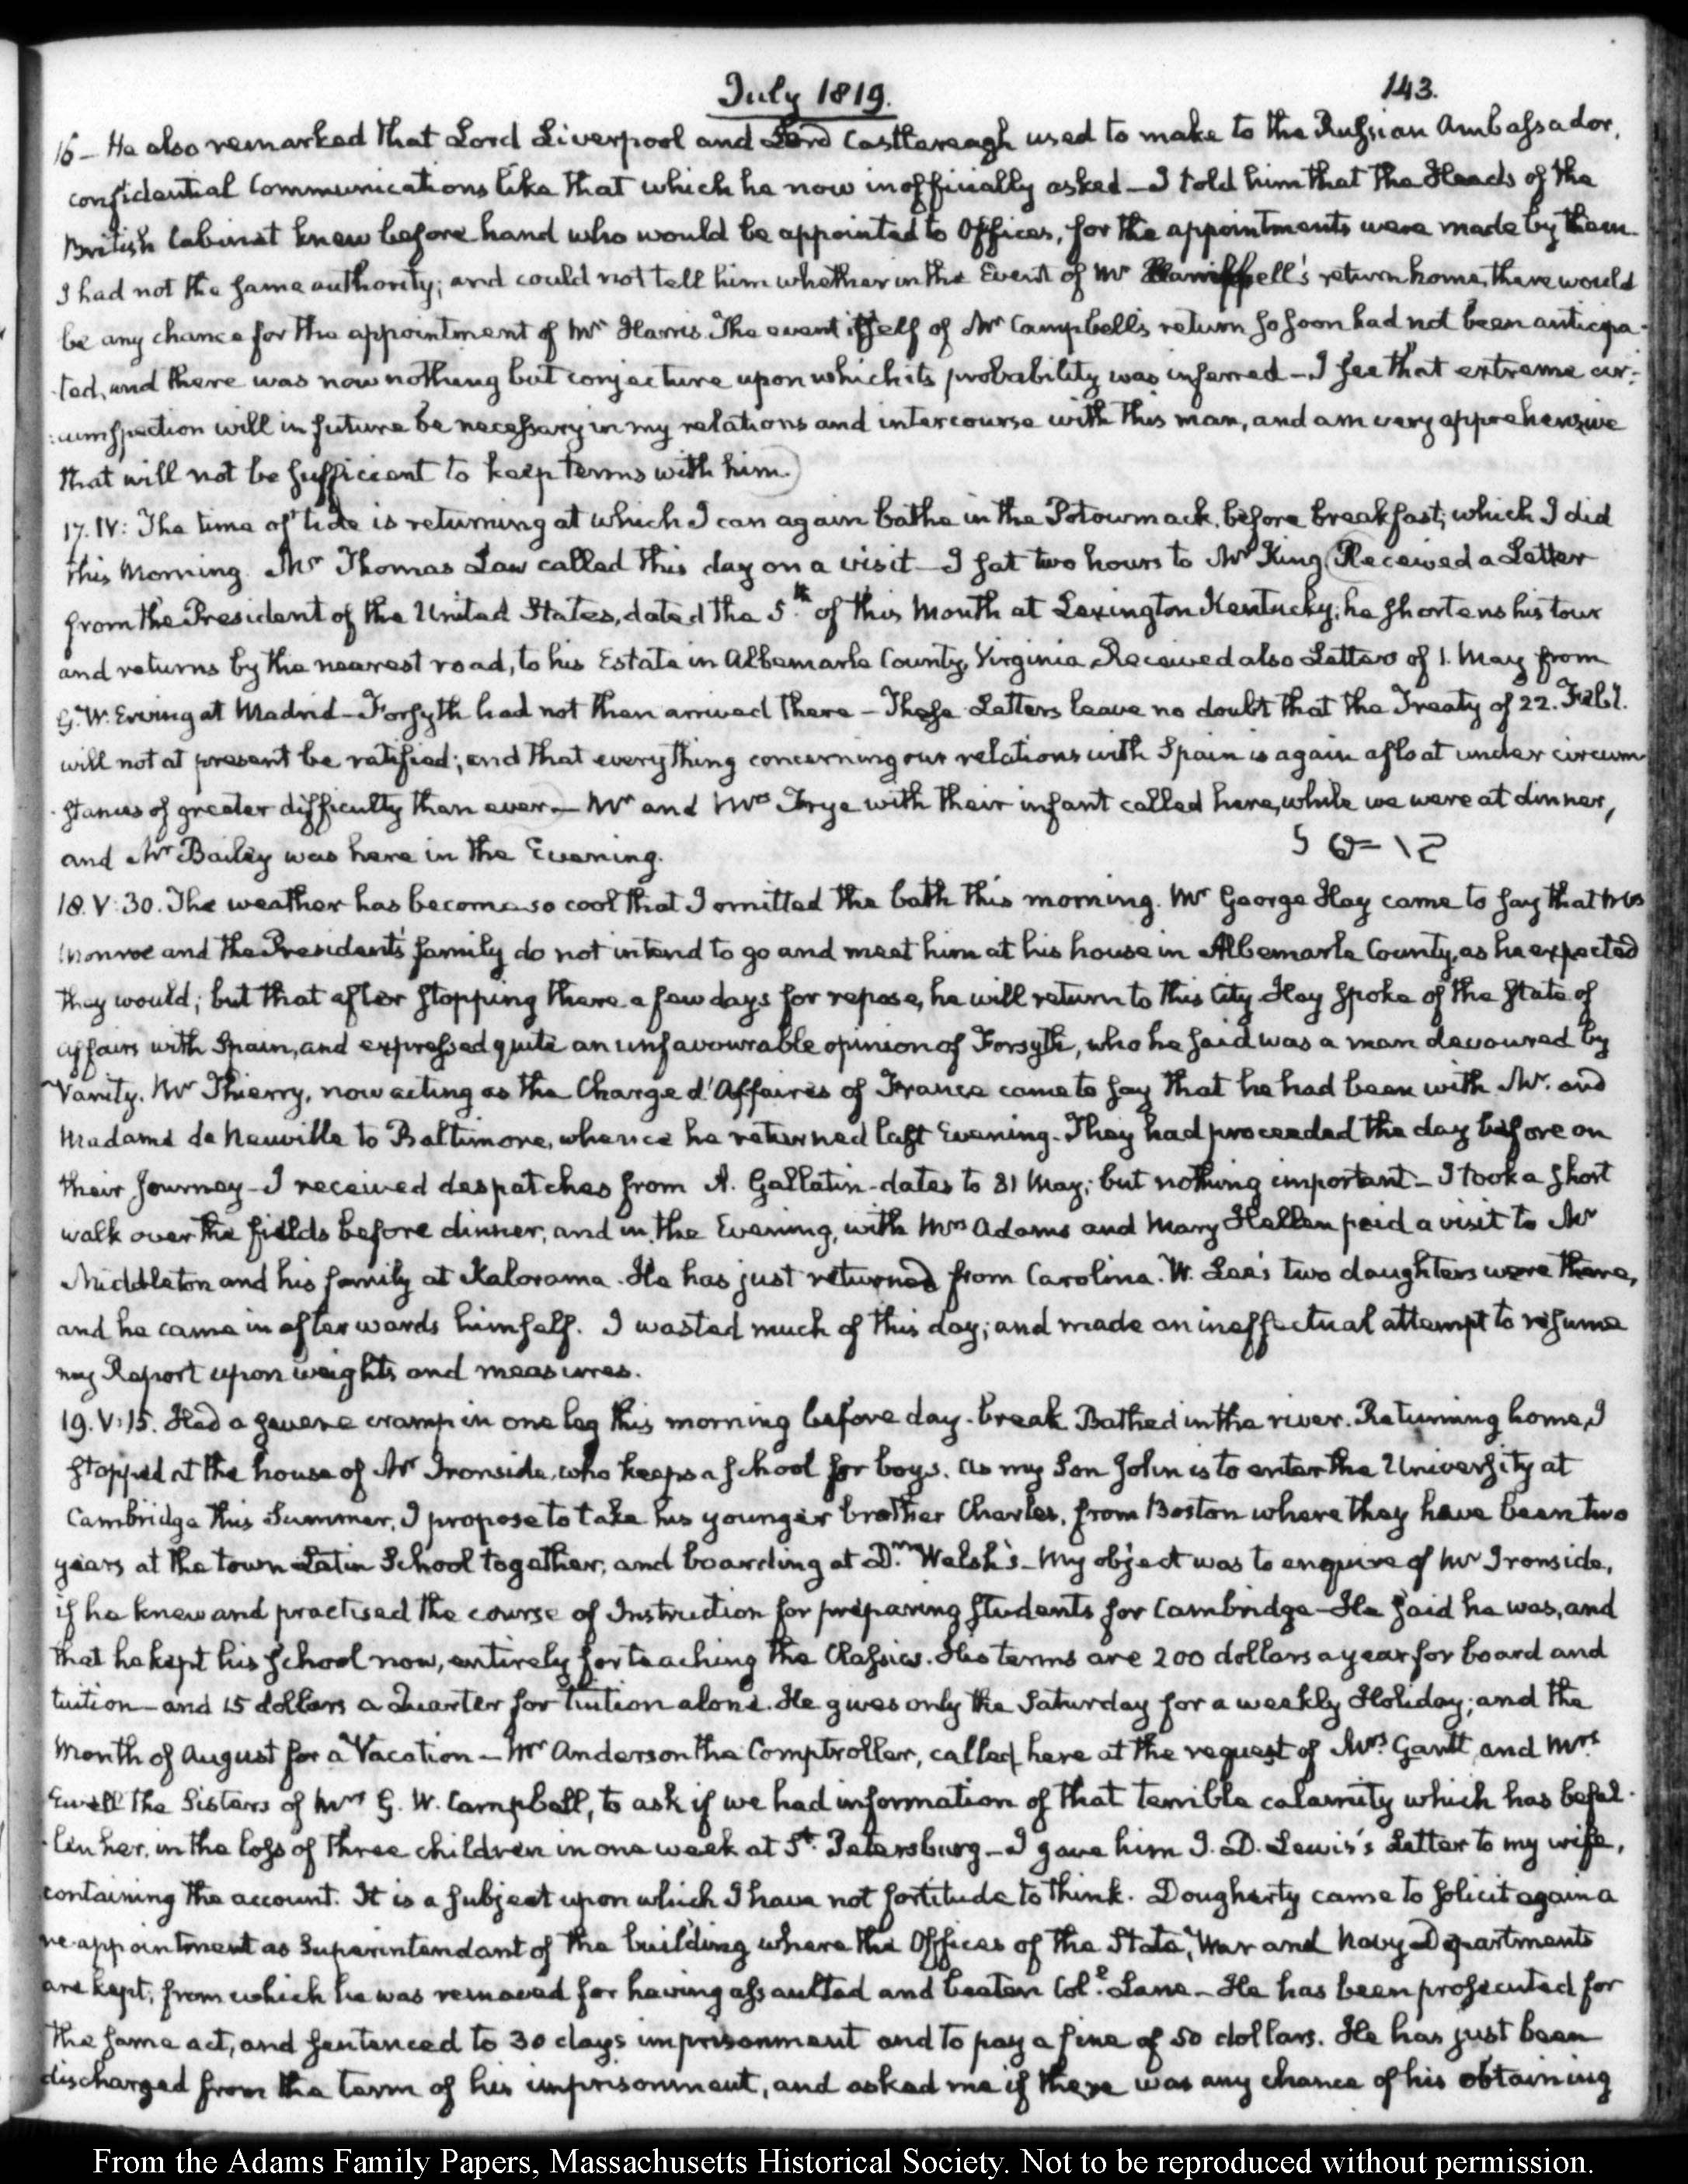 July 1819.
143.
16 – He also remarked that Lord Liverpool and Lord Castlereagh used to make to the Russian Ambassador,
confidential Communications like that which he now inofficially asked – I told him that the Heads of the
British Cabinet knew before hand who would be appointed to Offices, for the appointments were made by them.
I had not the same authority; and could not tell him whether in the Event of Mr Campbell's return home, there would
be any chance for the appointment of Mr Harris. The event itself of Mr Campbell's return so soon had not been anticipa-
-ted, and there was now nothing but conjecture upon which its probability was inferred – I see that extreme cir-
-cumspection will in future be necessary in my relations and intercourse with this man, and am very apprehensive
that will not be sufficient to keep terms with him.)
17. IV: The time of tide is returning at which I can again bathe in the Potowmack, before breakfast; which I did
this Morning. Mr Thomas Law called this day on a visit – I sat two hours to Mr King (Received a Letter
from the President of the United States, dated the 5th of this Month at Lexington Kentucky; he shortens his tour
and returns by the nearest road, to his Estate in Albemarle County, Virginia. Received also Letters of 1. May from
G. W. Erving at Madrid – Forsyth had not then arrived there – These Letters leave no doubt that the Treaty of 22. Feby.
will not at present be ratified; and that everything concerning our relations with Spain is again afloat under circum-
-stances of greater difficulty than ever) – Mr and Mrs Frye with their infant called here, while we were at dinner,
and Mr Bailey was here in the Evening.
18. V:30. The weather has become so cool that I omitted the bath this morning. Mr George Hay came to say that Mrs
Monroe and the President's family do not intend to go and meet him at his house in Albemarle County, as he expected
they would; but that after stopping there a few days for repose, he will return to this City. Hay spoke of the state of
affairs with Spain, and expressed quite an unfavourable opinion of Forsyth, who he said was a man devoured by
Vanity. Mr Thierry, now acting as the Charge d'Affaires of France came to say that he had been with Mr. and
Madame de Neuville to Baltimore, whence he returned last Evening. They had proceeded the day before on
their Journey – I received despatches from A. Gallatin - dates to 31 May; but nothing important – I took a short
walk over the fields before dinner; and in the Evening, with Mrs Adams and Mary Hellen paid a visit to Mr
Middleton and his family at Kalorama. He has just returned from Carolina. W. Lee's two daughters were there,
and he came in afterwards himself. I wasted much of this day; and made an ineffectual attempt to resume
my Report upon weights and measures.
19. V:15. Had a severe cramp in one leg this morning before day-break Bathed in the river. Returning home, I
stopped at the house of Mr Ironside, who keeps a school for boys. As my Son John is to enter the University at
Cambridge this Summer, I propose to take his younger brother Charles, from Boston where they have been two
years at the town Latin School together; and boarding at Dr. Welsh's – My object was to enquire of Mr Ironside,
if he knew and practised the course of Instruction for preparing students for Cambridge – He said he was, and
that he kept his school now, entirely for teaching the Classics. His terms are 200 dollars a year for board and
tuition – and 15 dollars a Quarter for tuition alone. He gives only the Saturday for a weekly Holiday; and the
Month of August for a Vacation – Mr Anderson the Comptroller, called here at the request of Mrs. Gantt, and Mrs.
Ewell the Sisters of Mrs G. W. Campbell, to ask if we had information of that terrible calamity which has befal-
-len her, in the loss of three children in one week at St. Petersburg – I gave him J. D. Lewis's Letter to my wife,
containing the account. It is a subject upon which I have not fortitude to think. Dougherty came to solicit again a
re-appointment as Superintendant of the building where the Offices of the State, War and Navy Departments
are kept; from which he was removed for having assaulted and beaten Col. Lane – He has been prosecuted for
the same act, and sentenced to 30 days imprisonment and to pay a fine of 50 dollars. He has just been
discharged from the term of his imprisonment, and asked me if there was any chance of his obtaining
From the Adams Family Papers, Massachusetts Historical Society. Not to be reproduced without permission.